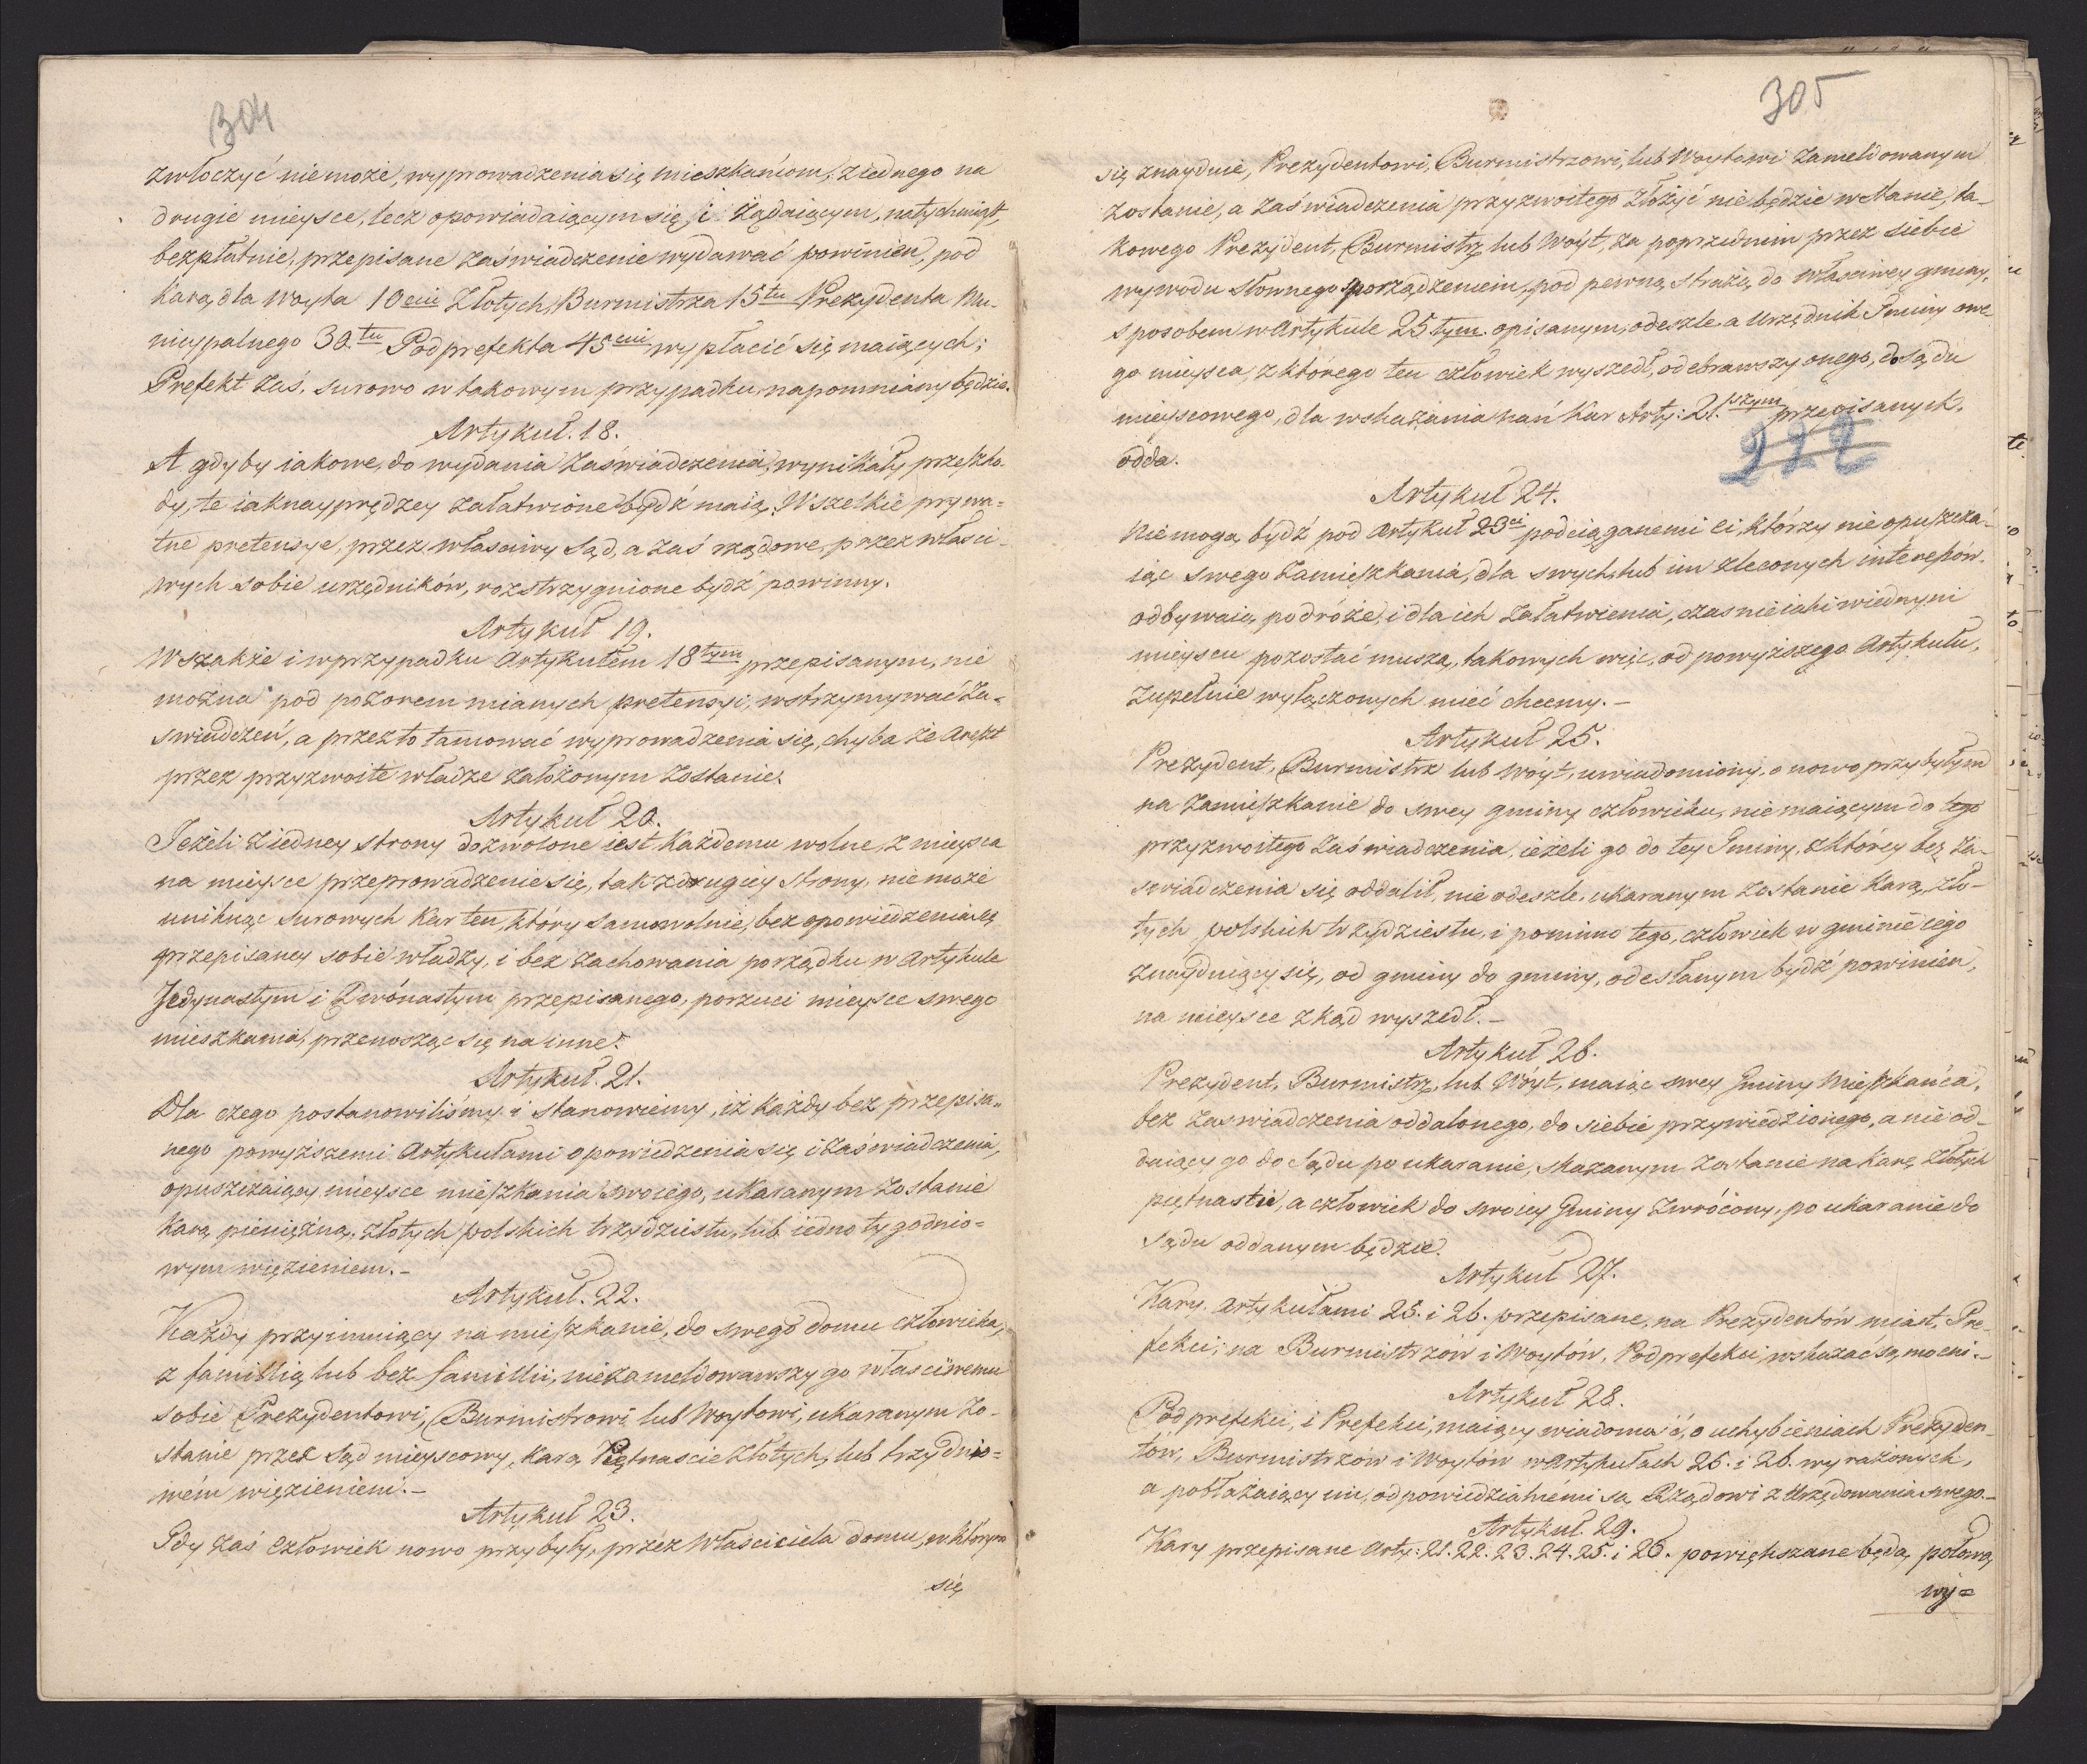 304
zwłoczyć niemoże, wyprowadzenia się mieszkańcom, z iednego na
drugie mieysce, lecz opowiadaiącym się i żądaiącym, natychmiast,
bezpłatnie, przepisane zaświadczenie wydawać powinien, pod
karą dla Woyta 10ciu Złotych, Burmistrza 15tu Prezydenta Mu-
nicypalnego 30.tu Podprefekta 45ciu wypłacić się maiących;
Prefekt zaś, surowo w takowym przypadku, napomniany będzie.
Artykuł. 18.
A gdyby iakowe, do wydania zaświadczenia, wynikały przeszko-
dy, te iaknayprędzey załatwione bydź maią. Wszelkie prywa-
tne pretensye, przez właściwy Sąd, a zaś rządowe, przez właści-
wych sobie urzędników, rozstrzygnione bydź powinny.
Artykuł 19.
Wszakże i wprzypadku Artykułem 18tym przepisanym, nie
można pod pozorem mianych pretensyi, wstrzymywać za-
świadczeń, a przez to tamować wyprowadzenia się, chyba że Areszt
przez przyzwoite władze założonym zostanie.
Artykuł 20.
Jeżeli ziedney strony dozwolone iest każdemu wolne, z mieysca
na mieysce przeprowadzenie się, tak zdrugiey strony, nie może
uniknąć surowych kar ten, który samowolnie, bez opowiedzenia się
przepisaney sobie władzy, i bez zachowania porządku w Artykule
Jedynastym i Dwónastym przepisanego, porzuci mieysce swego
mieszkania, przenosząc się na inne.
Artykuł. 21.
Dla czego postanowiliśmy i stanowiemy, iż każdy bez przepisa-
nego powyższemi Artykułami opowiedzenia się i zaświadczenia,
opuszczaiący mieysce mieszkania swoiego, ukaranym zostanie
karą pieniężną, złotych polskich trzydziestu, lub iedno tygodnio-
wym więzieniem.-
Artykuł. 22.
Każdy przyimuiący na mieszkanie, do swego domu człowieka,
z familią lub bez familii, niezameldowawszy go właściwemu
sobie Prezydentowi, Burmistrowi lub Woytowi, ukaranym zo-
stanie przez Sąd mieyscowy, karą Piętnaście złotych, lub trzydnio-
wém więzieniem.-
Artykuł 23.
Gdy zaś człowiek nowo przybyły, przez właściciela domu, w którym
się
305
się znayduie, Prezydentowi, Burmistrzowi, lub Woytowi zameldowanym
zostanie, a zaświadczenia przyzwoitego złożyć niebędzie w stanie, ta-
kowego Prezydent, Burmistrz lub Wóyt, za poprzedniem przez siebie
wywodu słownego sporządzeniem, pod pewną strażą, do właściwey gminy,
sposobem w Artykule 25tym. opisanym, odeszle, a Urzędnik Gminy owe-
go mieysca, z którego ten człowiek wyszedł, odebrawszy onego, do Sądu
mieyscowego, dla wskazania nań kar Arty: 21.szym przepisanych,
odda.
222
Artykuł 24.
Niemogą bydź pod Artykuł 23ci podciąganemi ci, którzy nie opuszcza-
iąc swego zamieszkania, dla swych, lub im zleconych interessów,
odbywaią podróże, i dla ich załatwienia, czas nieiaki w iednym
mieyscu pozostać muszą, takowych więc, od powyższego Artykułu,
zupełnie wyłączonych mieć chcemy.-
Artykuł 25.
Prezydent, Burmistrz lub Wóyt, uwiadomiony, o nowo przybyłym
na zamieszkanie do swey gminy człowieku, nie maiącym do tego
przyzwoitego zaświadczenia, ieżeli go do tey Gminy, z którey bez za-
świadczenia się oddalił, nie odeszle, ukaranym zostanie karą, zło-
tych polskich trzydziestu, i pomimo tego, człowiek w gminie iego
znayduiący się, od gminy do gminy, odesłanym bydź powinien,
na mieysce zkąd wyszedł.-
Artykuł 26.
Prezydent, Burmistrz, lub Wóyt, maiąc swey Gminy Mieszkańca,
bez zaświadczenia oddalonego, do siebie przywiedzionego, a nie od-
daiący go do Sądu po ukaranie, skazanym zostanie na karę Złotych
piętnastu, a człowiek do swoiey Gminy zwrócony, po ukaranie do
Sądu oddanym będzie.
Artykuł 27.
Kary, Artykułami 25. i 26. przepisane, na Prezydentów miast, Pre-
fekci, na Burmistrzów i Woytów, Podprefekci, wskazać są mocni.-
Artykuł 28.
Podprefekci, i Prefekci, maiący wiadomość, o uchybieniach Prezyden-
tów, Burmistrzów i Woytów w Artykułach 25. i 26. wyrażonych,
a pobłażaiący im, odpowiedzialnemi są Rządowi z Urzędowania swego.-
Artykuł. 29.
Kary przepisane Arty: 21. 22. 23. 24. 25. i 26. powiększane będą, połową
wy=